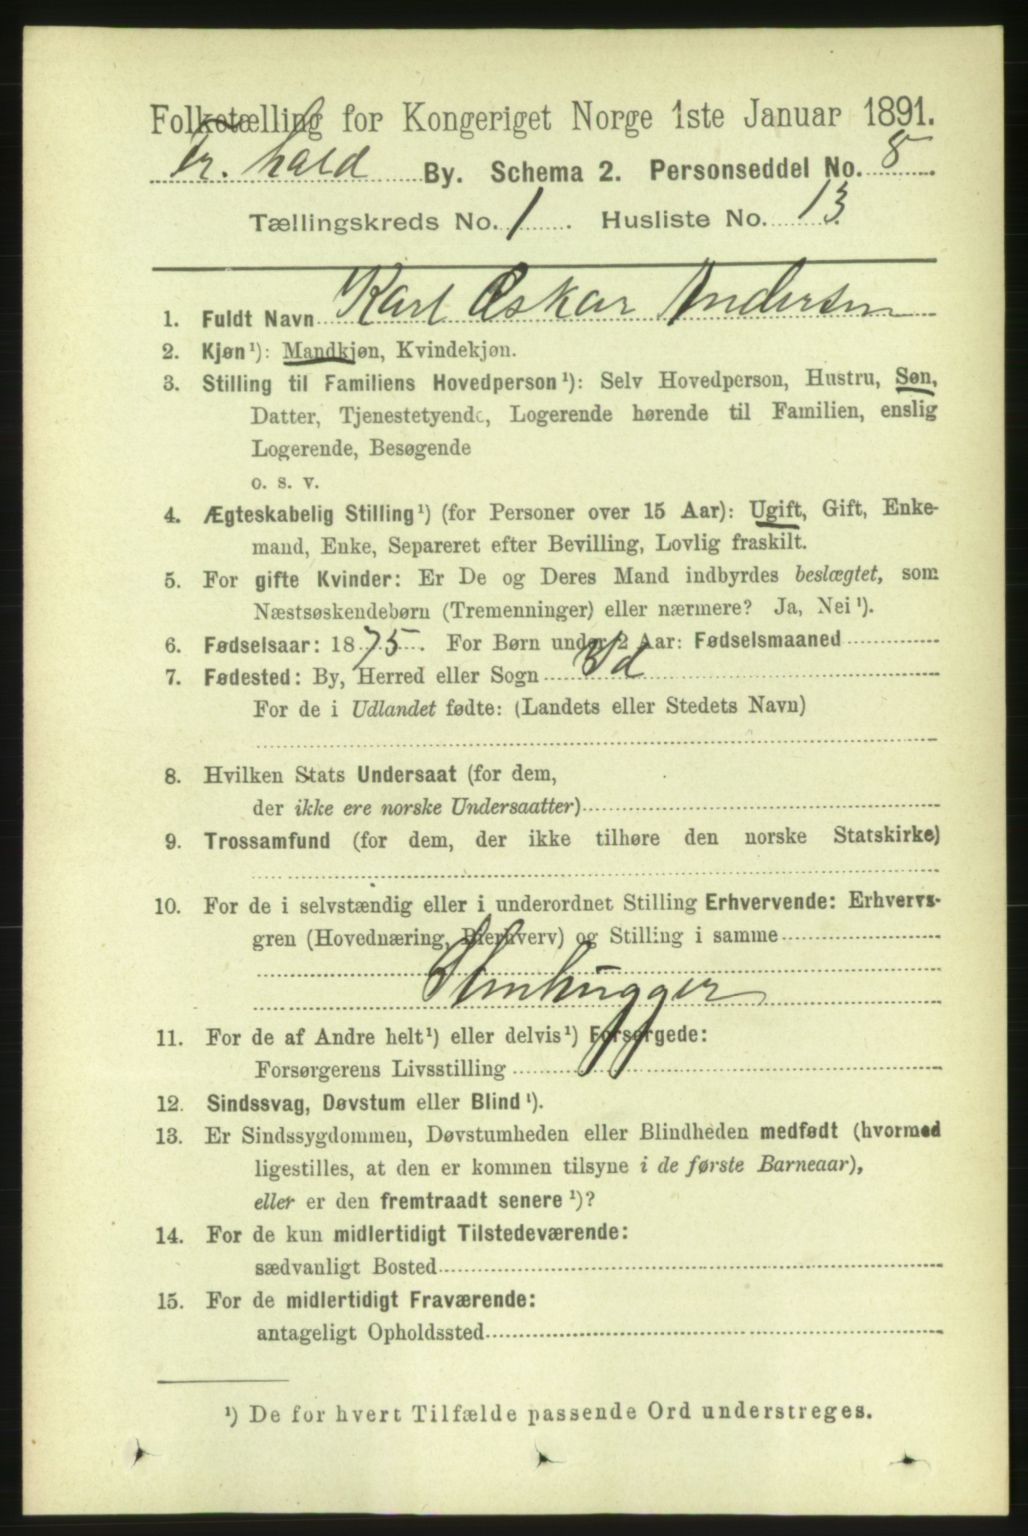 Folketælling for Kongeriget Norge 1ste Januar 1891.
Fr. hald By. Schema 2. Personseddel No. 8.
Tællingskreds No. 1. Husliste No. 13
1. Fuldt Navn Karl Oskar Andersen
2. Kjøn¹): Mandkjøn, Kvindekjøn.
3. Stilling til Familiens Hovedperson¹): Selv Hovedperson, Hustru, Søn,
Datter, Tjenestetyende, Logerende hørende til Familien, enslig
Logerende, Besøgende
o. s. v.
4. Ægteskabelig Stilling¹) (for Personer over 15 Aar): Ugift, Gift, Enke-
mand, Enke, Separeret efter Bevilling, Lovlig fraskilt.
5. For gifte Kvinder: Er De og Deres Mand indbyrdes beslægtet, som
Næstsøskendebørn (Tremenninger) eller nærmere? Ja, Nei¹).
6. Fødselsaar: 1875. For Børn under 2 Aar: Fødselsmaaned
7. Fødested: By, Herred eller Sogn Id
For de i Udlandet fødte: (Landets eller Stedets Navn)
8. Hvilken Stats Undersaat (for dem,
der ikke ere norske Undersaatter)
9. Trossamfund (for dem, der ikke tilhøre den norske Statskirke)
10. For de i selvstændig eller i underordnet Stilling Erhvervende: Erhvervs-
gren (Hovednæring, Bierhverv) og Stilling i samme
Stenhugger
11. For de af Andre helt¹) eller delvis¹) Forsørgede:
Forsørgerens Livsstilling
12. Sindssvag, Døvstum eller Blind¹).
13. Er Sindssygdommen, Døvstumheden eller Blindheden medfødt (hvormed
ligestilles, at den er kommen tilsyne i de første Barneaar),
eller er den fremtraadt senere¹)?
14. For de kun midlertidigt Tilstedeværende:
sædvanligt Bosted
15. For de midlertidigt Fraværende:
antageligt Opholdssted
¹) De for hvert Tilfælde passende Ord understreges.